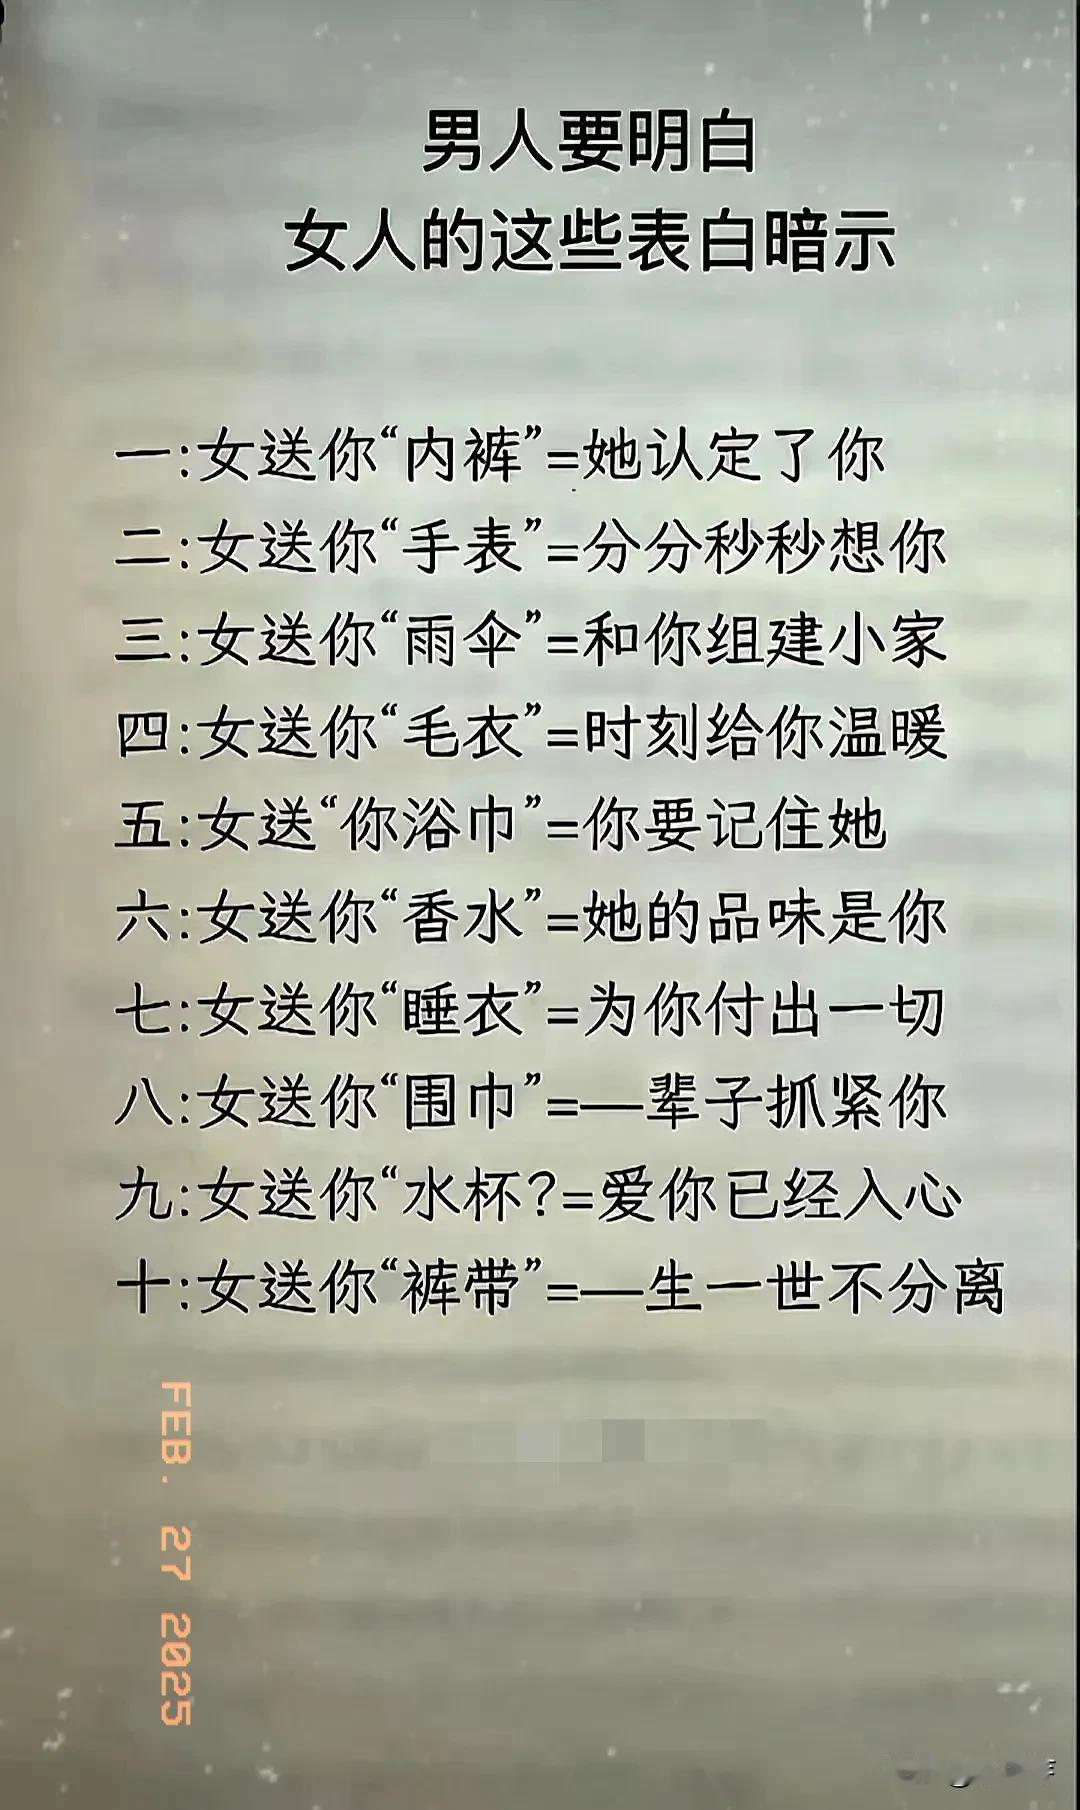 男人要明白
女人的这些表白暗示
一:女送你“内裤”=她认定了你
二:女送你“手表”=分分秒秒想你
三:女送你“雨伞”=和你组建小家
四:女送你“毛衣”=时刻给你温暖
五:女送“你浴巾”=你要记住她
六:女送你“香水”=她的品味是你
七:女送你“睡衣”=为你付出一切
八:女送你“围巾”=—辈子抓紧你
九:女送你“水杯?=爱你已经入心
十:女送你“裤带”=—生一世不分离
FEB. 27 2025